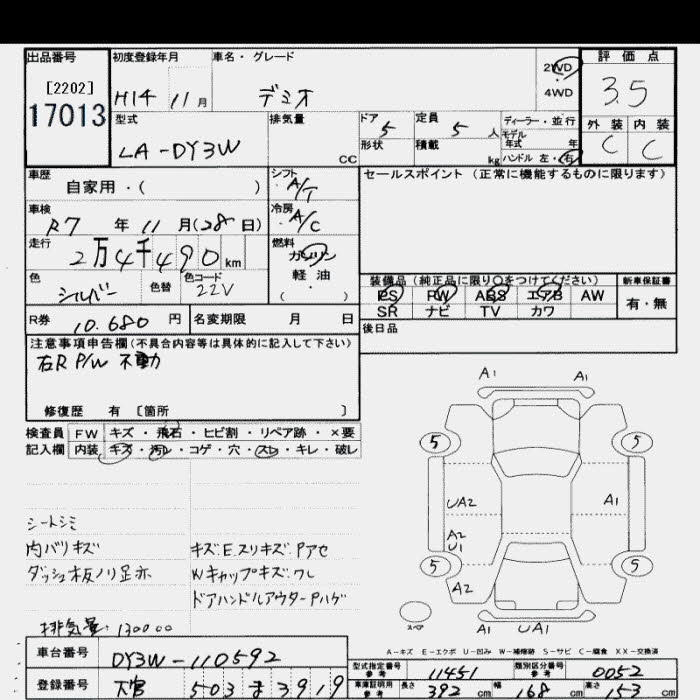 出品番号 初度登録年月 車名・グレード 評価点
[2202]
17013
H14 11月 デミオ 2WD 4WD 3.5
型式 排気量 ドア 定員 ディーラー・並行 外装 内装
LA-DY3W CC 5 5人 モデル年式 年 C C
形状 積載 kg ハンドル 左・右
車歴 シフト セールスポイント (正常に機能するものに限ります)
自家用・( ) A/T
車検 冷房
R7年 11月(28日) A/C
走行 燃料
2万4千490km ガソリン
色 色替 色コード 軽油 装備品 (純正品に限り○をつけてください) 新車保証書
シルバー 22V ( ) PS PW ABS エアB AW 有・無
SR ナビ TV カワ
R券 10.680円 名変期限 月 日 後日品
注意事項申告欄(不具合内容等は具体的に記入して下さい)
右R P/W 不動
修復歴 有 [箇所 ]
検査員 FW キズ・飛石・ヒビ割・リペア跡・×要
記入欄 内装 キズ・汚レ・コゲ・穴・スレ・キレ・破レ
A1 A1
5 5
UA2 A1
A2
U1
5 5
A2
スペア A1 UA1
シートシミ
内バリキズ キズ.E.スリキズ.Pアセ
ダッシュ板ノリ足亦 Wキャップキズ.ワレ
ドアハンドルアウターPハゲ
排気量:130000
A-キズ E-エクボ U-凹み W-補修跡 S-サビ C-腐食 XX-交換済
車台番号 DY3W-110592 型式指定番号 参考 11451 類別区分番号 参考 0052
登録番号 大宮 503 ま 3919 車庫証明用 参考 長さ 392cm 幅 168cm 高さ 153cm